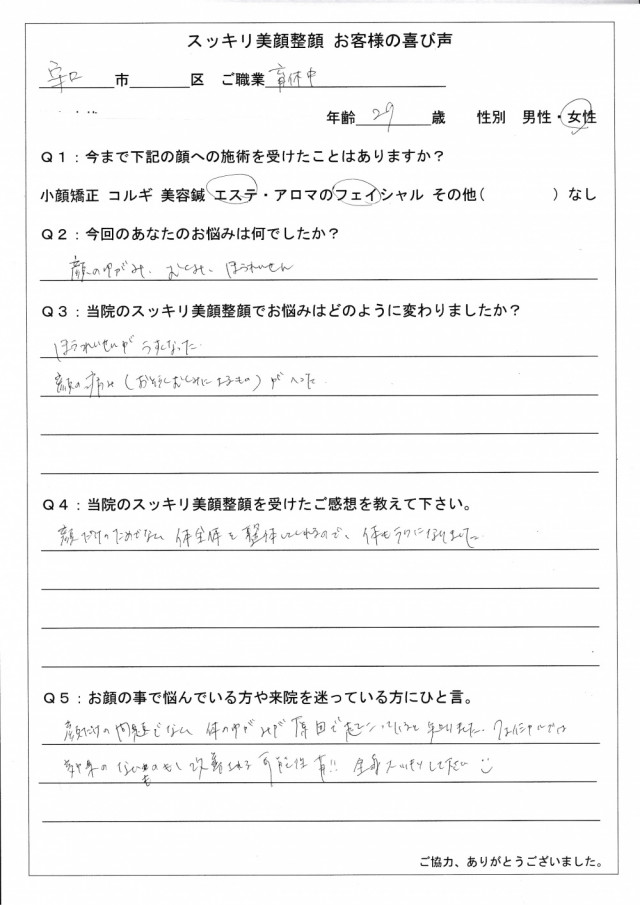 スッキリ美顔整顔 お客様の喜び声
守口 市 区 ご職業 育休中
年齢 29 歳 性別 男性・女性
Q1：今まで下記の顔への施術を受けたことはありますか？
小顔矯正 コルギ 美容鍼 エステ・アロマのフェイシャル その他( ) なし
Q2：今回のあなたのお悩みは何でしたか？
顔のゆがみ、むくみ、ほうれいせん
Q3：当院のスッキリ美顔整顔でお悩みはどのように変わりましたか？
ほうれいせんがうすくなった
顔の痛み(おそらくむくみによるもの)がへった
Q4：当院のスッキリ美顔整顔を受けたご感想を教えて下さい。
顔だけのためでなく 体全体を整体してくれるので、体もラクになりました
Q5：お顔の事で悩んでいる方や来院を迷っている方にひと言。
顔だけの問題でなく 体のゆがみが原因で起こっていると知りました。フェイシャルでは
効果のないものも改善される可能性有!! 全身スッキリして下さい
ご協力、ありがとうございました。